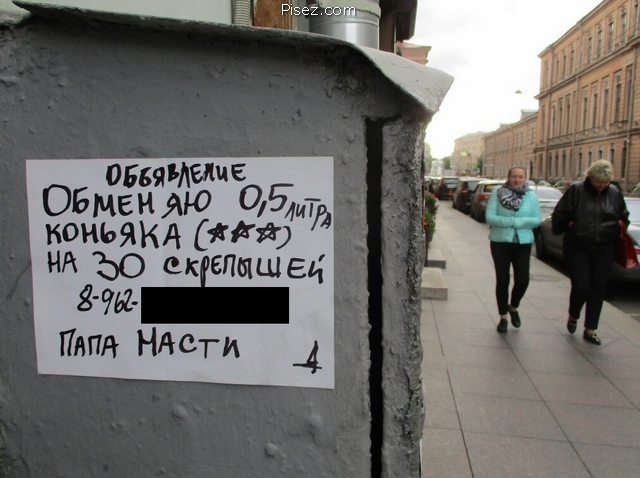 Pisez.com
ОБЪЯВЛЕНИЕ
ОБМЕНЯЮ 0,5 ЛИТРА
КОНЬЯКА (★★★)
НА 30 СКРЕПЫШЕЙ
8-962-
ПАПА МАСТИ